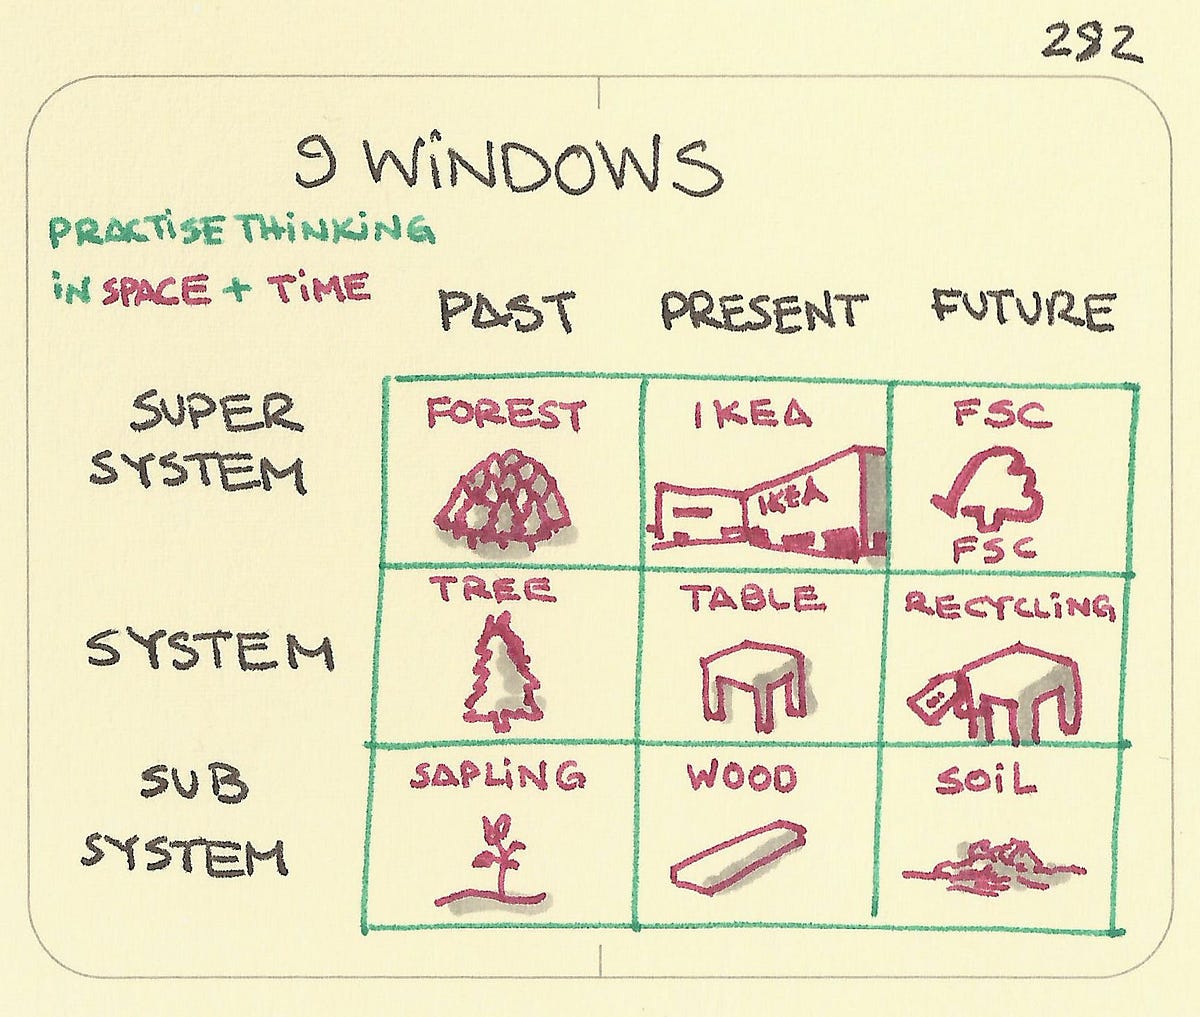 282
9 WiNDOWS
PRACTiSE THiNKiNG
iN SPACE + TiME
PAST PRESENT FUTURE
SUPER
SYSTEM
FOREST IKEA FSC
IKEA
FSC
SYSTEM
TREE TABLE RECYCLiNG
SUB
SYSTEM
SAPLiNG WOOD SOiL